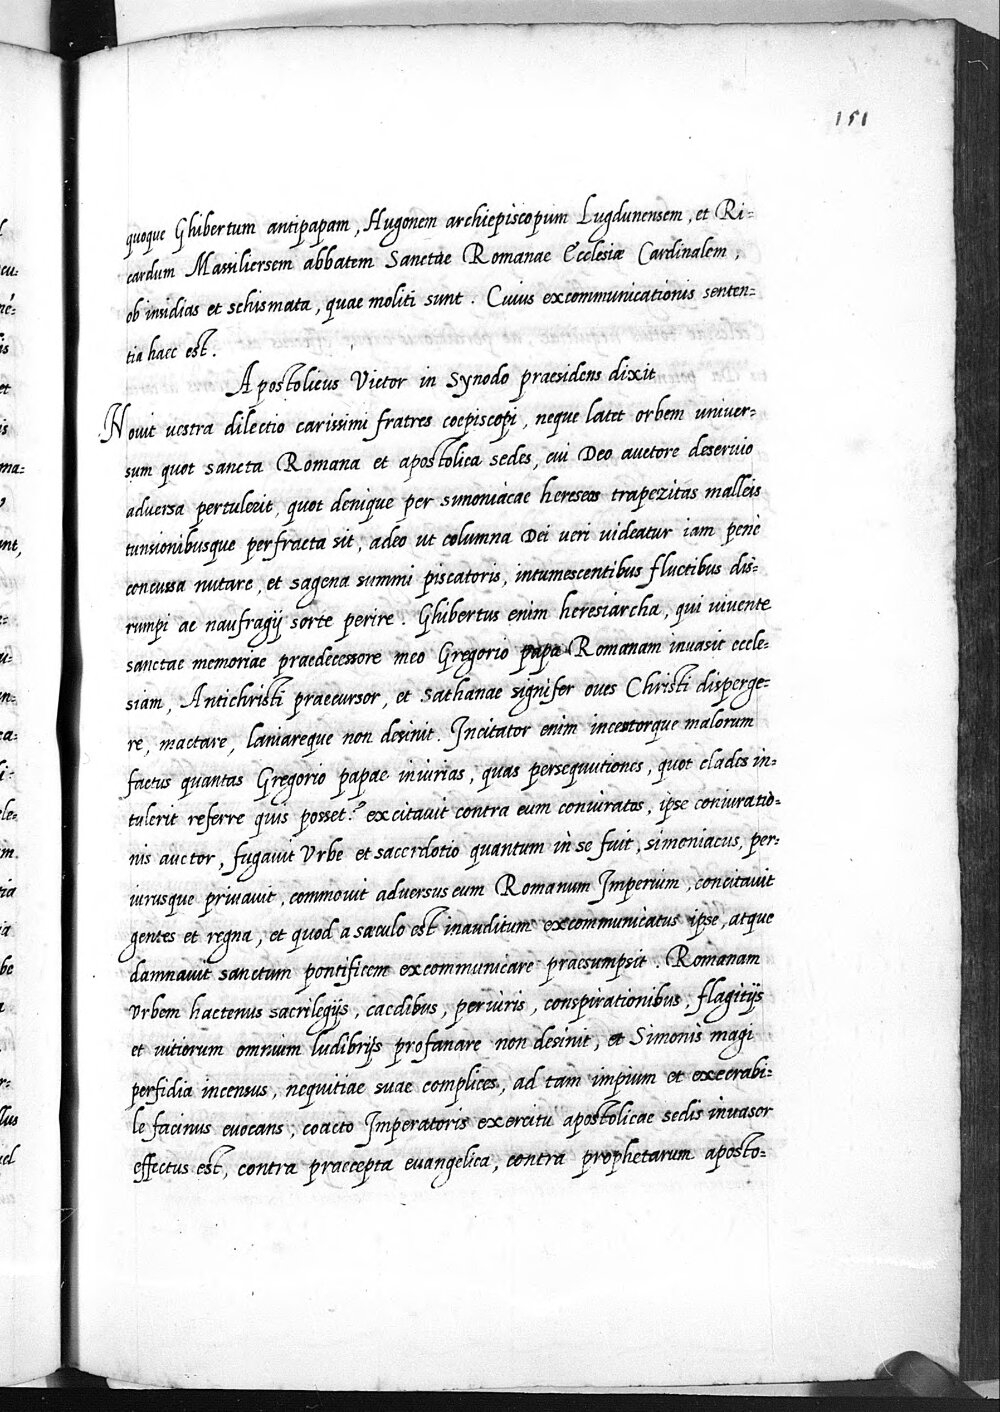 151
quoque Ghibertum antipapam, Hugonem archiepiscopum Lugdunensem, et Ri=
cardum Massiliersem abbatem Sanctae Romanae Ecclesiæ Cardinalem,
ob insidias et schismata, quae moliti sunt. Cuius excommunicationis senten=
tia haec est.
Apostolicus Victor in synodo praesidens dixit
Novit vestra dilectio carissimi fratres coepiscopi, neque latet orbem univer=
sum quot sancta Romana et apostolica sedes, cui Deo auctore deservio
adversa pertulerit, quot denique per simoniacae hereseos trapezitas malleis
tunsionibusque perfracta sit, adeo ut columna Dei veri videatur iam penè
concussa nutare, et sagena summi piscatoris, intumescentibus fluctibus dis=
rumpi ac naufragij sorte perire. Ghibertus enim heresiarcha, qui vivente
sanctae memoriae praedecessore meo Gregorio papa Romanam invasit eccle=
siam, Antichristi praecursor, et Sathanae signifer oves Christi disperge=
re, mactare, laniareque non desinit. Incitator enim incestorque malorum
factus quantas Gregorio papae iniurias, quas persequutiones, quot clades in=
tulerit referre quis posset? excitavit contra eum coniuratos, ipse coniuratio=
nis auctor, fugavit Urbe et sacerdotio quantum in se fuit, simoniacus, per=
iurusque privavit, commovit adversus eum Romanum Imperium, concitavit
gentes et regna, et quod a sæculo est inauditum excommunicatus ipse, atque
damnavit sanctum pontificem excommunicare praesumpsit. Romanam
Urbem hactenus sacrilegijs, caedibus, periuris, conspirationibus, flagitijs
et vitiorum omnium ludibrijs profanare non desinit, et Simonis magi
perfidia incensus, nequitiae suae complices, ad tam impium et execrabi=
le facinus evocans, coacto Imperatoris exercitu apostolicae sedis invasor
effectus est, contra praecepta evangelica, contra prophetarum aposto=